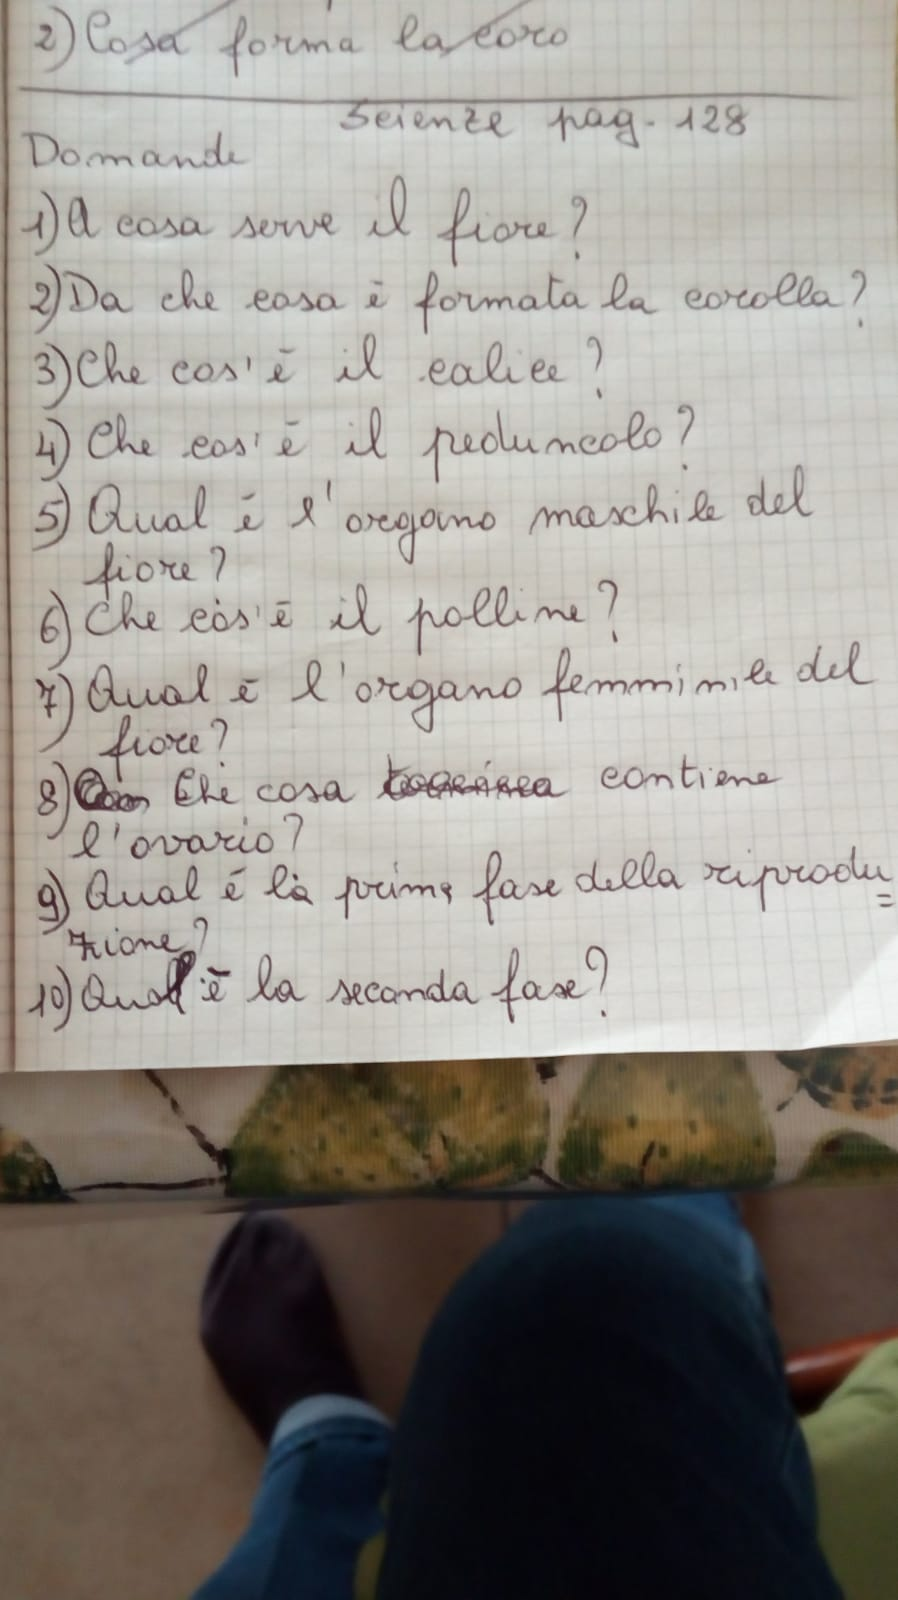 2) Cosa forma la coro
Scienze pag. 128
Domande
1) A cosa serve il fiore?
2) Da che cosa è formata la corolla?
3) Che cos'è il calice?
4) Che cos'è il peduncolo?
5) Qual è l'organo maschile del
fiore?
6) Che cos'è il polline?
7) Qual è l'organo femminile del
fiore?
8) Che cosa contiene
l'ovario?
9) Qual è la prima fase della riprodu=
zione?
10) Qual è la seconda fase?